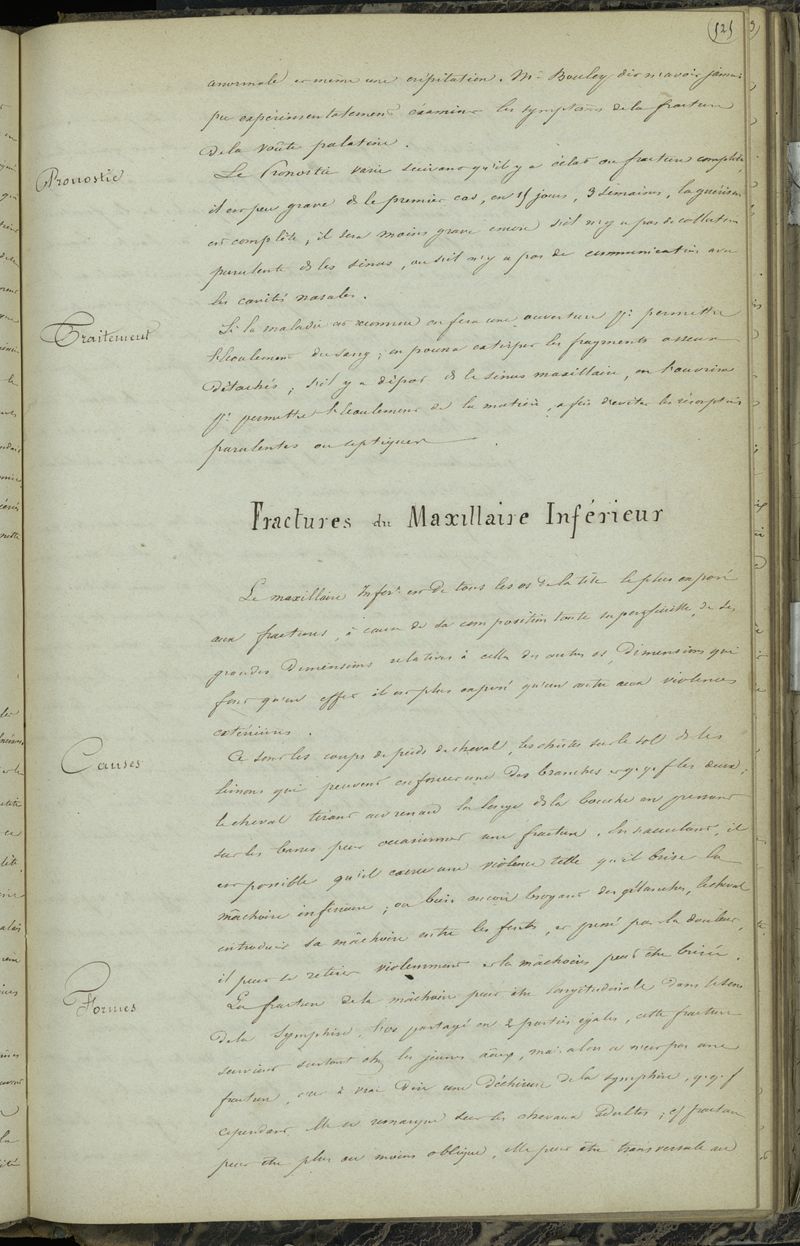 121
anormale et même une crépitation. Mr Bouley dit n'avoir jamais
pu expérimentalement examiner les symptômes de la fracture
de la voûte palatine.
Pronostic
Le Pronostic varie suivant qu'il y a éclat ou fracture complète,
il est peu grave ds le premier cas, en 15 jours, 3 semaines, la guérison
est complète, il sera moins grave encore s'il n'y a pas de collection
purulente ds les sinus, ou s'il n'y a pas de communication avec
les cavités nasales.
Traitement
Si la maladie est reconnue on fera une ouverture pr permettre
l'écoulement du sang; on pourra extirper les fragments osseux
détachés; s'il y a dépot ds le sinus maxillaire, on l'ouvrira
pr permettre l'écoulement de la matière, afin d'éviter les résorptions
purulentes ou septiques.
Fractures du Maxillaire Inférieur
Le maxillaire Infér. est de tous les os de la tête le plus exposé
aux fractures, à cause de sa composition toute superficielle, de ses
grandes dimensions relatives à celles des autres os, dimensions qui
font qu'en effet il est plus exposé qu'un autre aux violences
extérieures.
Causes
Ce sont les coups de pieds de cheval, les chûtes sur le sol ds les
limons qui peuvent enfoncer une des branches et q.q.f les deux;
le cheval tirant au renard la longe ds la bouche en pressant
sur les barres peut occasionner une fracture. En s'acculant, il
est possible qu'il exerce une violence telle qu'il brise la
mâchoire inférieure; ou bien encore broyant des planches, le cheval
introduit sa mâchoire entre les fentes, et pressé par la douleur,
il peut se retirer violemment et la mâchoire peut être brisée.
Formes
La fracture de la mâchoire peut être longitudinale dans le sens
de la symphise, l'os partagé en 2 parties égales, cette fracture
survient surtout chez les jeunes anx, mais alors ce n'est pas une
fracture, c'est à vrai dire une déchirure de la symphise, q.q.f
cependant elle se remarque sur les chevaux adultes; cette fracture
peut être plus ou moins oblique, elle peut être transversale au